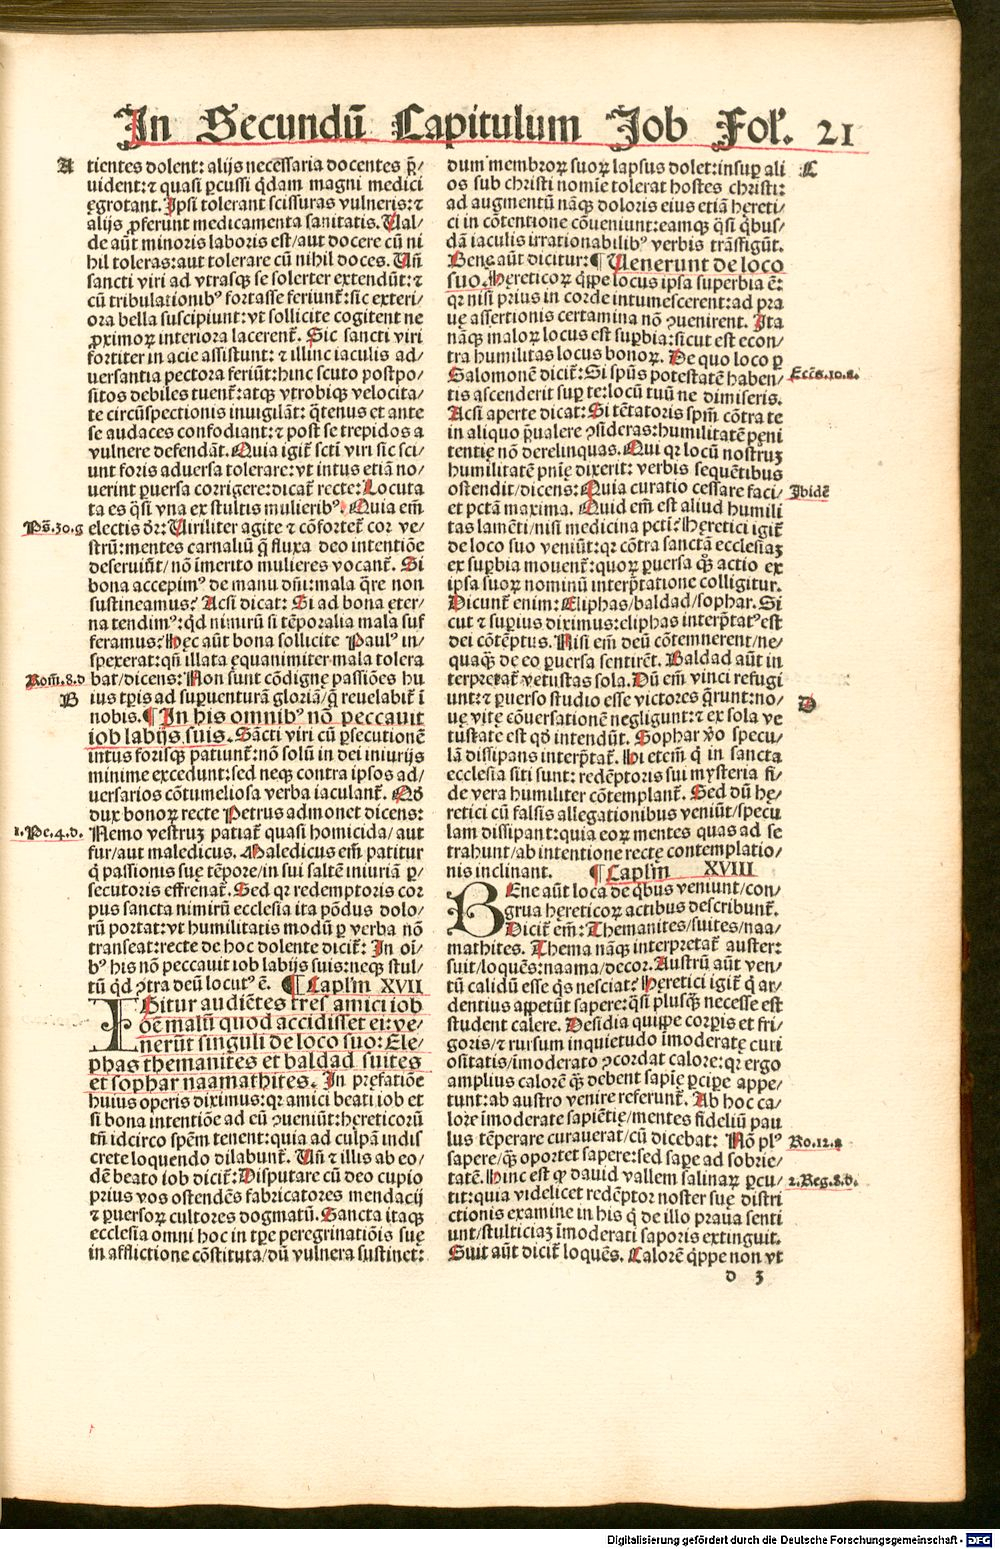 In Secundū Capitulum Job Fol'. 21
A
tientes dolent: alijs necessaria docentes p̄/
uident: ⁊ quasi ꝑcussi q̄dam magni medici
ęgrotant. Ipsi tolerant scissuras vulneris: ⁊
alijs ꝓferunt medicamenta sanitatis. Ual/
de aūt minoris laboris est/aut docere cū ni
hil toleras: aut tolerare cū nihil doces. Uñ
sancti viri ad vtrasqꝫ se solerter extendūt: ⁊
cū tribulationibꝰ fortasse feriunt̃: sic exteri/
ora bella suscipiunt: vt sollicite cogitent ne
ꝓximoꝝ interiora lacerent̃. Sic sancti viri
fortiter in acie assistunt: ⁊ illinc iaculis ad/
versantia pectora feriūt: hinc scuto postpo/
sitos debiles tuent̃: atqꝫ vtrobiqꝫ velocita/
te circūspectionis inuigilāt: q̄tenus et ante
se audaces confodiant: ⁊ post se trepidos a
vulnere defendāt. Quia igit̃ scti viri sic sci/
unt foris aduersa tolerare: vt intus etiā no/
uerint ꝑuersa corrigere: dicat̃ recte: Locuta
ta es q̄si vna ex stultis mulieribꝰ. Quia em̄
Ps̄.30.g
electis dr̄: Uiriliter agite ⁊ cōfortet̃ cor ve/
strū: mentes carnaliū q̄ fluxa deo intentiōe
deseruiūt/ nō īmerito mulieres vocant̃. Si
bona accepimꝰ de manu dn̄i: mala q̄re non
sustineamus? Acsi dicat: Si ad bona ęter/
na tendimꝰ: qd nimirū si tēporalia mala suf
feramus? Hęc aūt bona sollicite Paulꝰ in/
spexerat: qn̄ illata ęquanimiter mala tolera
Rom̄.8.d
bat/dicens: Non sunt cōdignę passiōes hu
B
ius tꝑis ad supuenturā gloriā/q̄ reuelabit̃ ī
nobis. ¶ In his omnibꝰ nō peccauit
iob labijs suis. Sācti viri cū ꝑsecutionē
intus forisqꝫ patiunt̃: nō solū in dei iniurijs
minime excedunt: sed neqꝫ contra ipsos ad/
uersarios cōtumeliosa verba iaculant̃. Qd
dux bonoꝝ recte Petrus admonet dicens:
1.Pe.4.d.
Nemo vestruꝫ patiat̃ quasi homicida/ aut
fur/aut maledicus. Maledicus em̄ patitur
q̄ passionis suę tēpore/in sui saltē iniuriā ꝑ/
secutoris effrenat̃. Sed qꝛ redemptoris cor
pus sancta nimirū ecclesia ita pōdus dolo/
rū portat: vt humilitatis modū ꝑ verba nō
transeat: recte de hoc dolente dicit̃: In oī/
bꝰ his nō peccauit iob labijs suis: neqꝫ stul/
tū qd ꝯtra deū locutꝰ ē. ¶ Caplm̄ XVII
IGitur audiētes tres amici iob
oēm alū quod accidisset ei: ve/
nerūt singuli de loco suo: Ele/
phas themanites et baldad suites
et sophar naamathites. In pręfatiōe
huius operis diximus: qꝛ amici beati iob et
si bona intentiōe ad eū ꝯueniūt: hereticorū
tn̄ idcirco spēm tenent: quia ad culpā indis
crete loquendo dilabunt̃. Uñ ⁊ illis ab eo/
dē beato iob dicit̃: Disputare cū deo cupio
prius vos ostendēs fabricatores mendacij
⁊ ꝑuersoꝝ cultores dogmatū. Sancta itaqꝫ
ecclesia omni hoc in tꝑe peregrinatiōis suę
in afflictione cōstituta/dū vulnera sustinet:
C
dum membroꝝ suoꝝ lapsus dolet: insuꝑ ali
os sub christi noīe tolerat hostes christi:
ad augmentū nāqꝫ doloris eius etiā hęreti/
ci in cōtentione cōueniunt: eamqꝫ q̄si q̄bus/
dā iaculis irrationabilibꝰ verbis trāsfigūt.
Bene aūt dicitur: ¶ Uenerunt de loco
suo. Hęreticoꝝ q̄ppe locus ipsa superbia ē:
qꝛ nisi prius in corde intumescerent: ad pra
uę assertionis certamina nō ꝯuenirent. Ita
nāqꝫ maloꝝ locus est suꝑbia: sicut est econ/
tra humilitas locus bonoꝝ. De quo loco ꝑ
Eccēs.10.a.
Salomonē dicit̃: Si spūs potestatē haben/
tis ascenderit suꝑ te: locū tuū ne dimiseris.
Acsi aperte dicat: Si tētatoris spm̄ cōtra te
in aliquo p̄ualere ꝯsideras: humilitatē pęni
tentię nō derelinquas. Qui qꝛ locū nostruꝫ
humilitatē pnię dixerit: verbis sequētibus
Ibidē
ostendit/dicens: Quia curatio cessare faci/
et pctā maxima. Quid em̄ est aliud humili
tas lamēti/nisi medicina pcti? Hęretici igit̃
de loco suo veniūt: qꝛ cōtra sanctā ecclesiaꝫ
ex suꝑbia mouent̃: quoꝝ ꝑuersa qꝫ actio ex
ipsa suoꝝ nominū interp̄tatione colligitur.
Dicunt̃ enim: Eliphas/baldad/sophar. Si
cut ⁊ suꝑius diximus: eliphas interp̄tatꝰ est
dei cōtēptus. Nisi em̄ deū cōtemnerent/ne/
quaqꝫ de eo ꝑuersa sentirēt. Baldad aūt in
terpretat̃ vetustas sola. Dū em̄ vinci refugi
D
unt: ⁊ ꝑuerso studio esse victores q̄runt: no/
uę vitę cōuersationē negligunt: ⁊ ex sola ve
tustate est qd intendūt. Sophar vo specu/
lā dissipans interp̄tat̃. Hi etem̄ q̄ in sancta
ecclesia siti sunt: redēptoris sui mysteria fi/
de vera humiliter cōtemplant̃. Sed dū hę/
retici cū falsis allegationibus veniūt/specu
lam dissipant: quia eoꝝ mentes quas ad se
trahunt/ab intentione rectę contemplatio/
nis inclinant. ¶ Caplm̄ XVIII
BEne aūt loca de q̄bus veniunt/con/
grua hęreticoꝝ actibus describunt̃.
Dicit̃ em̄: Themanites/suites/naa/
mathites. Thema nāqꝫ interpretat̃ auster:
suit/loquēs: naama/decor. Austrū aūt ven/
tū calidū esse q̄s nesciat? Hęretici igit̃ q̄ ar/
dentius appetūt sapere: q̄si plusqꝫ necesse est
student calere. Desidia quippe corpis et fri/
goris/⁊ rursum inquietudo īmoderatę curi
ositatis/īmoderato ꝯcordat calore: qꝛ ergo
amplius calorē qꝫ debent sapię ꝑcipe appe/
tunt: ab austro venire referunt̃. Ab hoc ca/
lore īmoderate sapiētię/mentes fideliū pau
Ro.12.a
lus tēperare curauerat/cū dicebat: Nō plꝰ
sapere/qꝫ oportet sapere: sed sape ad sobrie/
2.Reg.8.d.
tatē. Hinc est qꝫ dauid vallem salinaꝝ ꝑcu/
tit: quia videlicet redēptor noster suę distri
ctionis examine in his q̄ de illo praua senti
unt/stulticiaꝫ īmoderati saporis extinguit.
Suit aūt dicit̃ loquēs. Calorē q̄ppe non vt
d 3
Digitalisierung gefördert durch die Deutsche Forschungsgemeinschaft - DFG